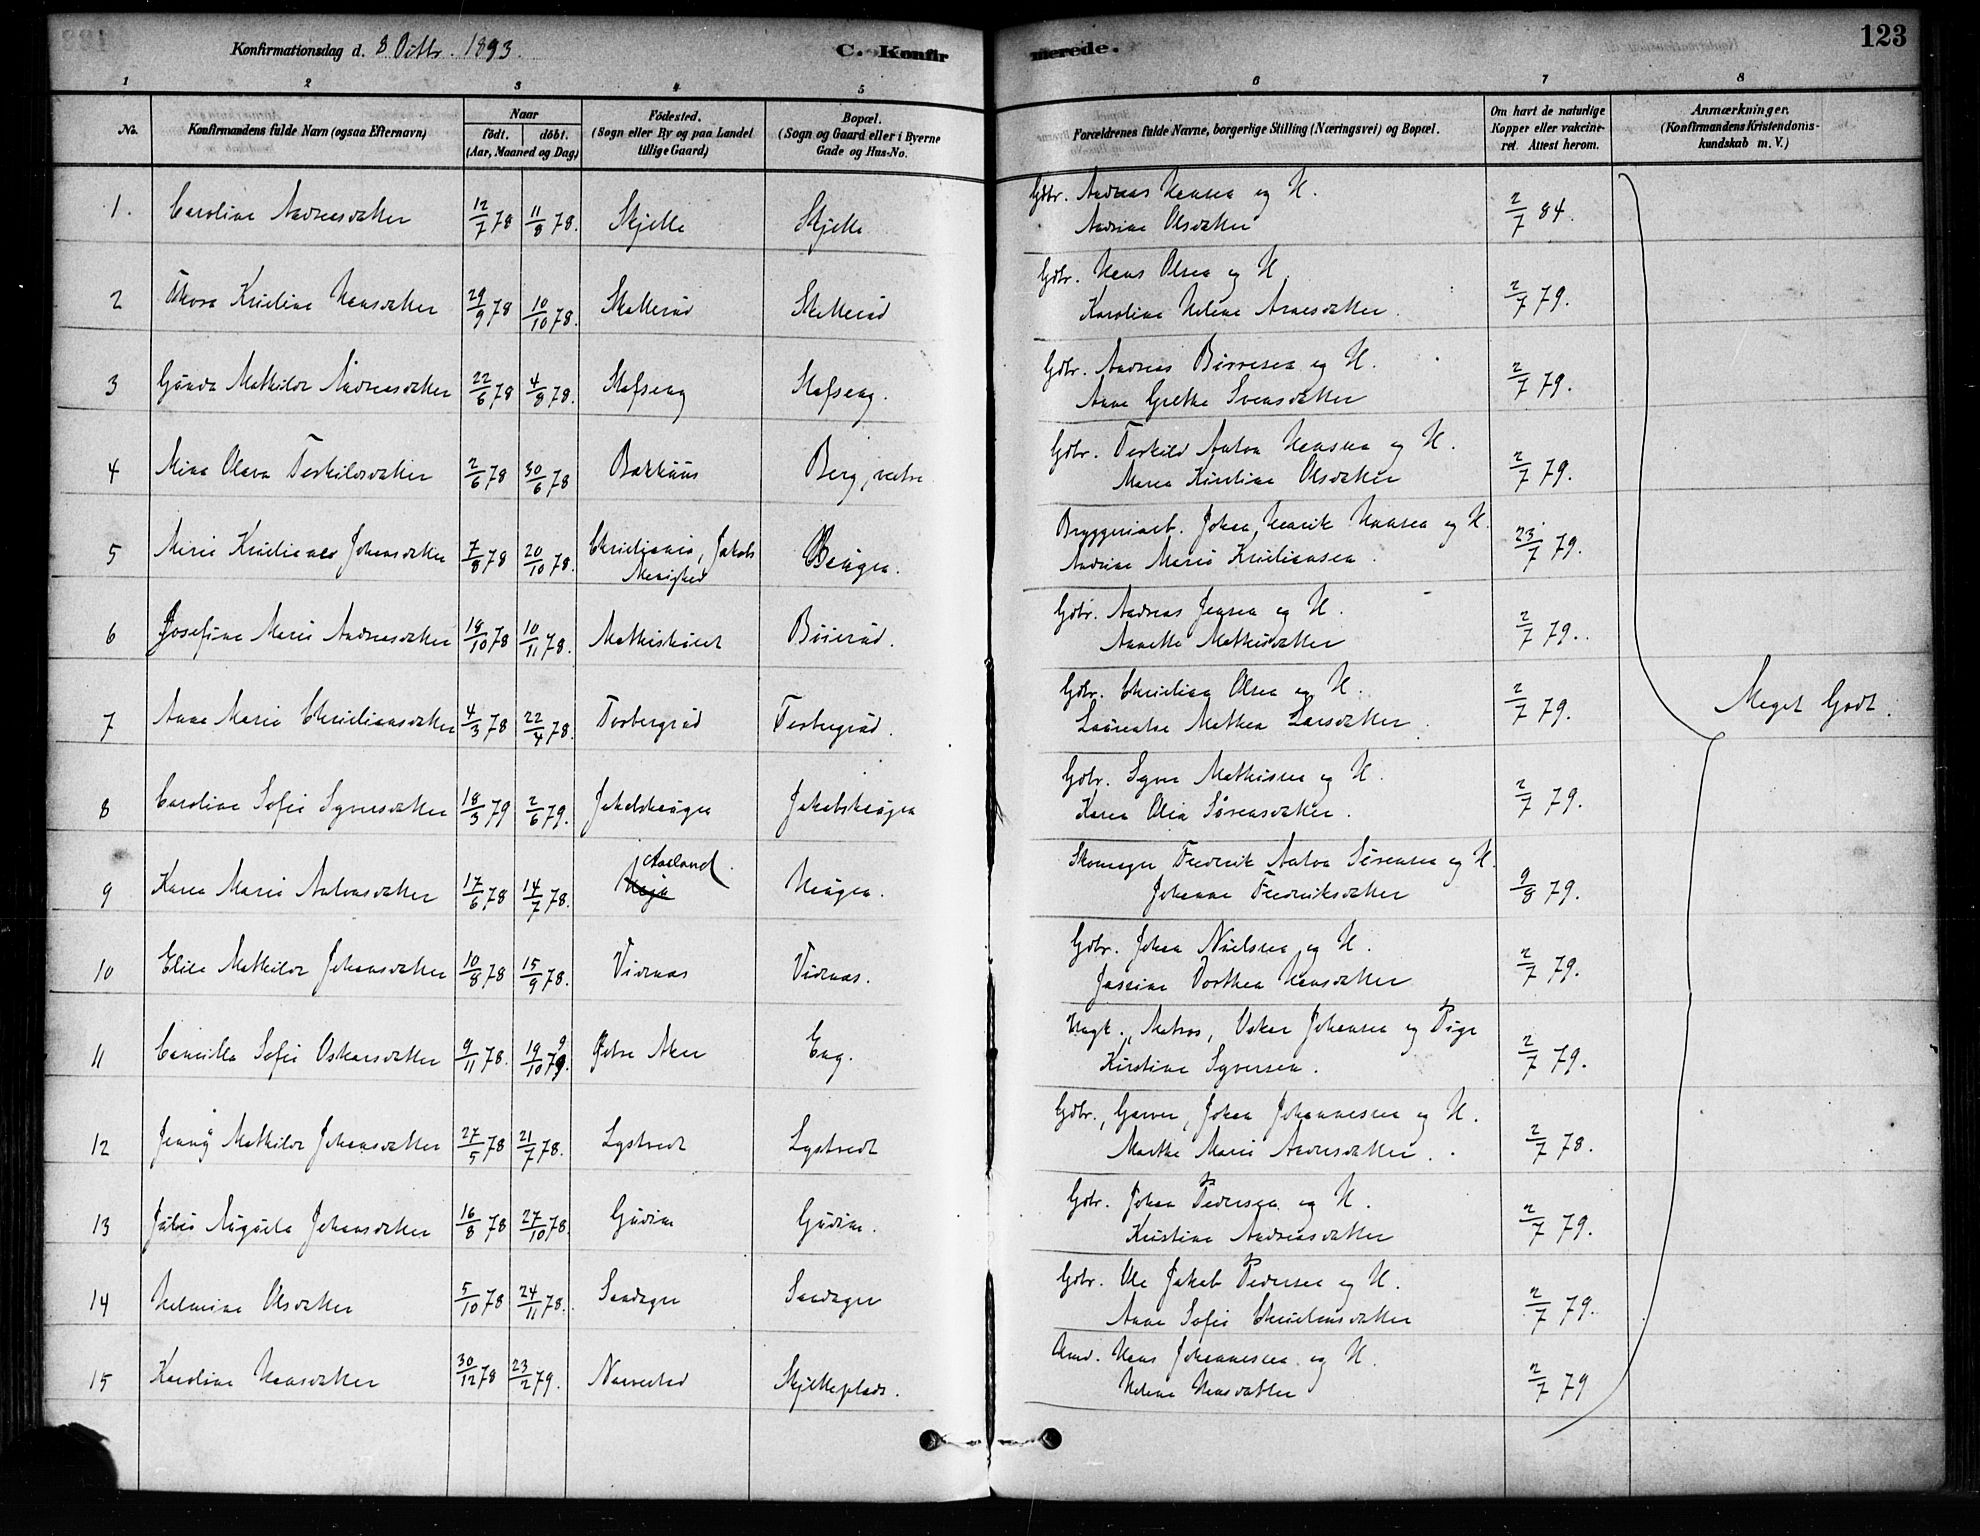 Konfirmationsdag d. 8 Octbr. 1893.
C. Konfirmerede.
123
1 2 3 4 5 6 7 8
No.
Konfirmandens fulde Navn (ogsaa Efternavn)
Naar
födt. döbt.
(Aar, Maaned og Dag)
Födested.
(Sogn eller By og paa Landet
tillige Gaard)
Bopæl.
(Sogn og Gaard eller i Byerne
Gade og Hus-No.
Forældrenes fulde Navne, borgerlige Stilling (Næringsvei) og Bopæl.
Om havt de naturlige
Kopper eller vakcine-
ret. Attest herom.
Anmærkninger.
(Konfirmandens Kristendoms-
kundskab m. V.)
1. Caroline Andreasdatter 12/7 78 11/8 78. Skjelle Skjelle Gdbr. Andreas Hansen og H. 2/7 84.
Andrine Olsdatter
2 Thora Kristine Hansdatter 29/9 78 10/10 78. Skallerud Skallerud Gdbr. Hans Olsen og H. 2/7 79.
Karoline Helene Arnesdatter.
3 Gunda Mathilde Andreasdatter 22/6 78 4/8 78. Stafseng Stafseng. Gdbr. Andreas Börresen og H. 2/7 79.
Anne Grethe Svensdatter
4 Mina Olava Terkildsdatter 2/6 78 30/6 78 Bakkhuus Berg, vestre Gdbr. Terkild Anton Hansen og H. 2/7 79.
Maren Kirstine Olsdatter
5 Marie Kristiane Johansdatter 7/8 78 20/10 78. Christiania, Jakobs Menighed Haugen. Bryggeriarb. Johan Henrik Hansen og H. 23/7 79.
Andrine Marie Kristiansen.
6 Josefine Marie Andreasdatter 18/10 78 10/11 78. Mathiskaset Böierud. Gdbr. Andreas Jensen og H. 2/7 79.
Annette Mathisdatter
7 Anna Marie Christiansdatter 4/3 78 22/4 78. Torbergrud Torbergrud. Gdbr. Christian Olsen og H. 2/7 79.
Laurentse Mathea Larsdatter.
8 Caroline Sofie Syversdatter 18/3 79 2/6 79. Jakobshaugen Jakobshaugen Gdbr. Syver Mathisen og H. 2/7 79.
Karen Olea Sörensdatter.
9 Karen Marie Antonsdatter 17/6 78 14/7 78. Aaeland. Haugen. Skomager Fredrik Anton Sörensen og H. 9/8 79.
Johanne Fredriksdatter
10 Elise Mathilde Johansdatter 10/8 78 15/9 78. Vidnes Vidnes. Gdbr. Johan Nielsen og H. 2/7 79.
Josefine Dorthea Hansdatter
11 Camilla Sofie Oskarsdatter 9/11 78. 19/10 79. Östre Aker Eng. Ungk., Matros, Oskar Johansen og Pige 2/7 79.
Kirstine Syversen.
12 Jenny Mathilde Johansdatter 27/5 78 21/7 78. Lystvedt Lystvedt Gdbr., Garver, Johan Johannesen og H. 2/7 78.
Marthe Marie Andersdatter.
13 Julie Augusta Johansdatter 16/8 78 27/10 78. Gudim Gudim. Gdbr. Johan Pedersen og H. 2/7 79.
Kristine Andreasdatter
14 Helmine Olsdatter 5/10 78 24/11 78. Sandager Sandager Gdbr. Ole Jakob Pedersen og H. 2/7 79.
Anne Sofie Christensdatter
15 Karoline Hansdatter 30/12 78 23/2 79. Naerestad Skjelleplads. Hmd. Hans Johannesen og H. 2/7 79
Helene Hansdatter
Meget Godt.